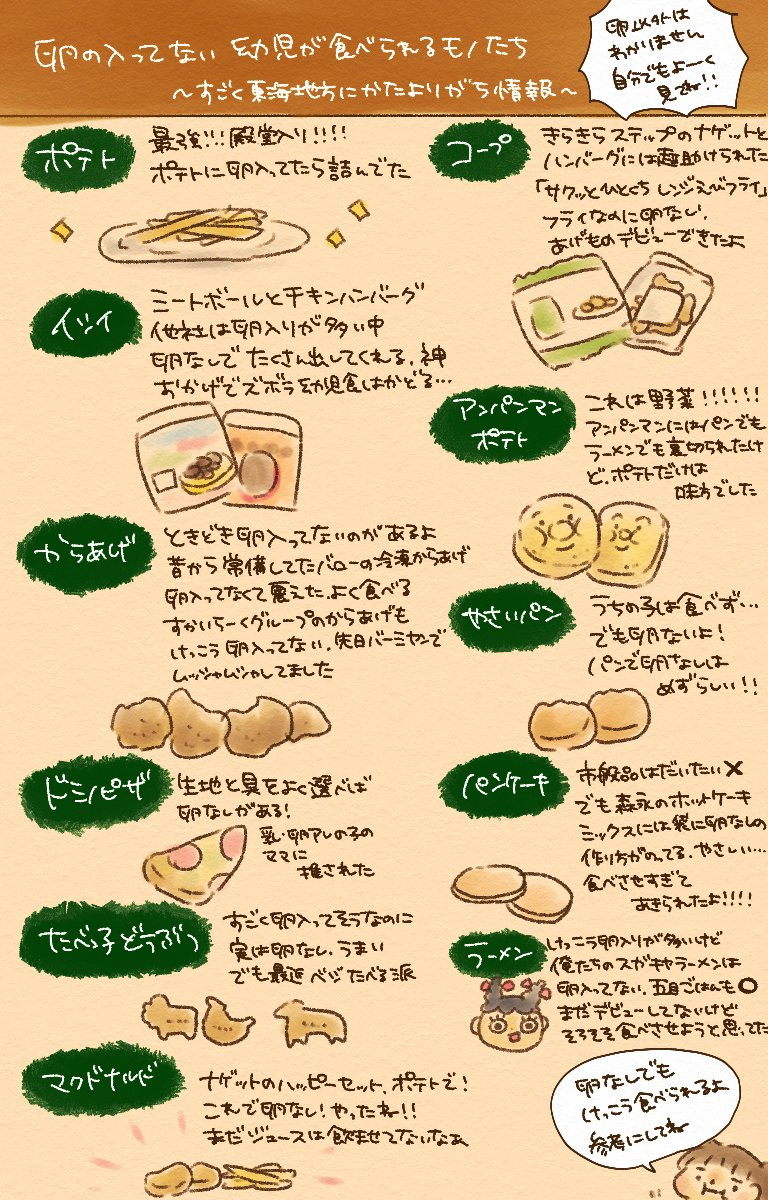 卵の入ってない 幼児が食べられるモノたち
〜すごく東海地方にかたよりがち情報〜
卵コンタミは
わかりません
自分でもよーく
見てね!!
ポテト
最強!!!殿堂入り!!!!
ポテトに卵入ってたら詰んでた
イシイ
ミートボールとチキンハンバーグ
他社は卵入りが多い中
卵なしで たくさん出してくれる、神
おかげでズボラ幼児食はかどる…
からあげ
ときどき卵入ってないのがあるよ
昔から常備してたバローの冷凍からあげ
卵入ってなくて震えた、よく食べる
すかいらーくグループのからあげも
けっこう卵入ってない、先日バーミヤンで
ムッシャムシャしてました
ドミノピザ
生地と具をよく選べば
卵なしがある!
乳・卵アレの子の
ママに
推された
たべっ子どうぶつ
すごく卵入ってそうなのに
実は卵なし、うまい
でも最近 ベジたべる派
マクドナルド
ナゲットのハッピーセット、ポテトで!
これで卵なし!やったね!!
まだジュースは飲ませてないなぁ
コープ
きらきらステップのナゲットと
ハンバーグには超助けられた
「サクッとひとくち レンジえびフライ」
フライなのに卵なし、
あげものデビューできたよ
アンパンマン
ポテト
これは野菜!!!!!!
アンパンマンにはパンでも
ラーメンでも裏切られたけ
ど、ポテトだけは
味方でした
やさいパン
うちの子は食べず…
でも卵ないよ!
パンで卵なしは
めずらしい!!
パンケーキ
市販品はだいたい×
でも森永のホットケーキ
ミックスには袋に卵なしの
作り方がのってる、やさしい…
食べさせすぎて
あきられたよ!!!!
ラーメン
けっこう卵入りが多いけど
俺たちのスガキヤラーメンは
卵入ってない、五目ごはんも○
まだデビューしてないけど
そろそろ食べさせようと思ってた
卵なしでも
けっこう食べられるよ
参考にしてね